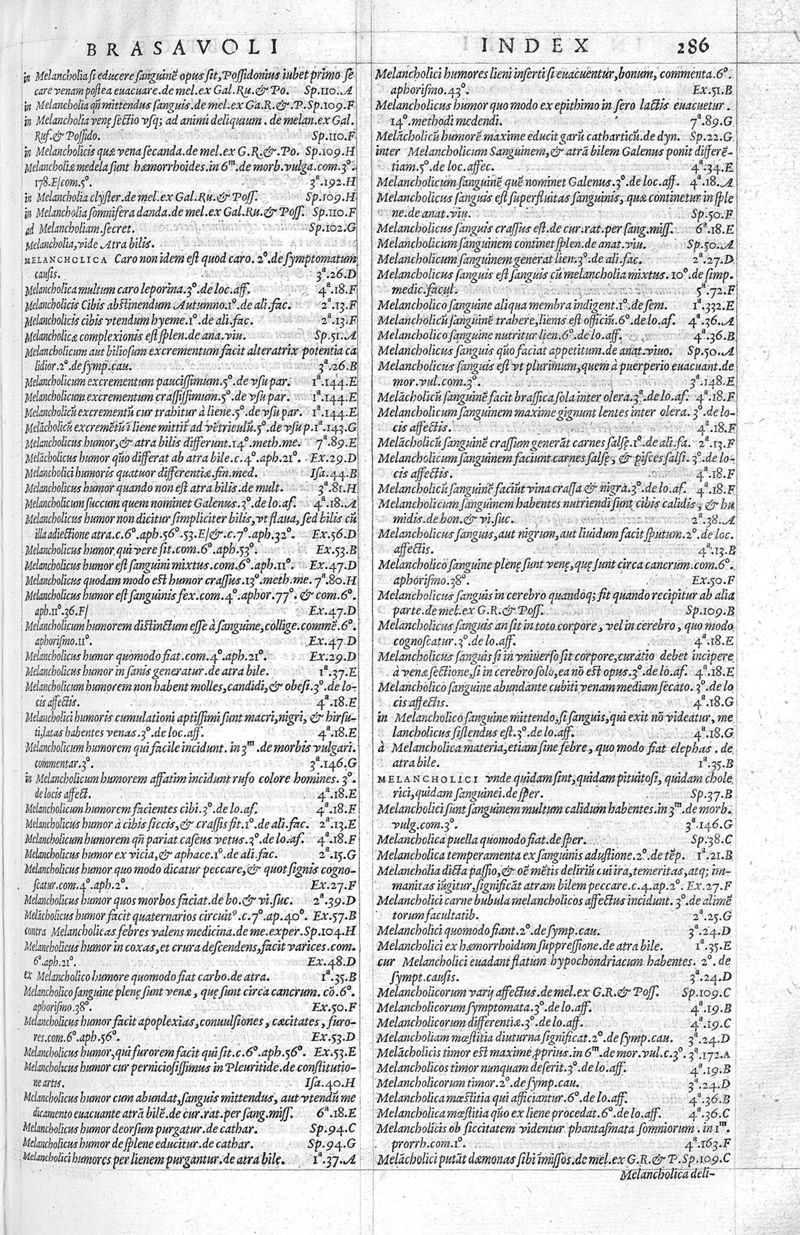 BRASAVOLI
in Melancholia si educere sanguinē opus sit, Possidonius iubet primo se
care venam postea euacuare. de mel. ex Gal. Ru. & Po. Sp. 110. A
in Melancholia qñ mittendus sanguis. de mel. ex Ga. R. & P. Sp. 109. F
in Melancholia venę sectio vsq; ad animi deliquium. de melan. ex Gal.
Ruf. & Possido. Sp. 110. F
in Melancholicis quæ vena secanda. de mel. ex G. R. & Po. Sp. 109. H
Melancholiæ medela sunt hæmorrhoides. in 6ᵐ. de morb. vulga. com. 3°.
178. E/com. 5°. 3ᵃ. 192. H
in Melancholia clyster. de mel. ex Gal. Ru. & Poss. Sp. 109. H
in Melancholia somnifera danda. de mel. ex Gal. Ru. & Poss. Sp. 110. F
ad Melancholiam. secret. Sp. 102. G
Melancholia, vide Atra bilis.
MELANCHOLICA Caro non idem est quod caro. 2°. de symptomatum
causis. 3ᵃ. 26. D
Melancholica multum caro leporina. 3°. de loc. aff. 4ᵃ. 18. F
Melancholicis Cibis abstinendum Autumno. 1°. de ali. fac. 2ᵃ. 13. F
Melancholicis cibis vtendum hyeme. 1°. de ali. fac. 2ᵃ. 13. F
Melancholicæ complexionis est splen. de ana. viu. Sp. 51. A
Melancholicum aut biliosum excrementum facit alteratrix potentia ca
lidior. 2°. de symp. cau. 3ᵃ. 26. B
Melancholicum excrementum paucissimum. 5°. de vsu par. 1ᵃ. 144. E
Melancholicum excrementum crassissimum. 5°. de vsu par. 1ᵃ. 144. E
Melancholicū excrementū cur trahitur à liene. 5°. de vsu par. 1ᵃ. 144. E
Melācholicū excremētū à liene mittit̄ ad vētriculū. 5°. de vsu p. 1ᵃ. 143. G
Melancholicus humor, & atra bilis differunt. 14°. meth. me. 7ᵃ. 89. E
Melācholicus humor quō differat ab atra bile. c. 4°. aph. 21°. Ex. 29. D
Melancholici humoris quatuor differentiæ. fin. med. Isa. 44. B
Melancholicus humor quando non est atra bilis. de mult. 3ᵃ. 81. H
Melancholicum succum quem nominet Galenus. 3°. de lo. aff. 4ᵃ. 18. A
Melancholicus humor non dicitur simpliciter bilis, vt flaua, sed bilis cū
illa adiectione atra. c. 6°. aph. 56°. 53. E/& c. 7°. aph. 32°. Ex. 56. D
Melancholicus humor, qui vere sit. com. 6°. aph. 53°. Ex. 53. B
Melancholicus humor est sanguini mixtus. com. 6°. aph. 11°. Ex. 47. D
Melancholicus quodam modo est humor crassus. 13°. meth. me. 7ᵃ. 80. H
Melancholicus humor est sanguinis fex. com. 4°. aphor. 77°. & com. 6°.
aph. 11°. 36. F/ Ex. 47. D
Melancholicum humorem distinctum esse à sanguine, collige. commē. 6°.
aphorismo. 11°. Ex. 47 D
Melancholicus humor quomodo fiat. com. 4°. aph. 21°. Ex. 29. D
Melancholicus humor in sanis generatur. de atra bile. 1ᵃ. 37. E
Melancholicum humorem non habent molles, candidi, & obesi. 3°. de lo-
cis affectis. 4ᵃ. 18. E
Melancholici humoris cumulationi aptissimi sunt macri, nigri, & hirsu-
ti, latas habentes venas. 3°. de loc. aff. 4ᵃ. 18. E
Melancholicum humorem qui facile incidunt. in 3ᵐ. de morbis vulgari.
commentar. 3°. 3ᵃ. 146. G
in Melancholicum humorem affatim incidunt rufo colore homines. 3°.
de locis affect. 4ᵃ. 18. E
Melancholicum humorem facientes cibi. 3°. de lo. af. 4ᵃ. 18. F
Melancholicus humor à cibis siccis, & crassis fit. 1°. de ali. fac. 2ᵃ. 13. E
Melancholicum humorem qñ pariat caseus vetus. 3°. de lo. aff. 4ᵃ. 18. F
Melancholicus humor ex vicia, & aphace. 1°. de ali. fac. 2ᵃ. 15. G
Melancholicus humor quo modo dicatur peccare, & quot signis cogno-
scatur. com. 4°. aph. 2°. Ex. 27. F
Melancholicus humor quos morbos faciat. de bo. & vi. suc. 2ᵃ. 39. D
Melācholicus humor facit quaternarios circuit⁹. c. 7°. ap. 40°. Ex. 57. B
contra Melancholicas febres valens medicina. de me. exper. Sp. 104. H
Melancholicus humor in coxas, et crura descendens, facit varices. com.
6°. aph. 21°. Ex. 48. D
ex Melancholico humore quomodo fiat carbo. de atra. 1ᵃ. 35. B
Melancholico sanguine plenę sunt venæ, quę sunt circa cancrum. cō. 6°.
aphorismo. 38°. Ex. 50. F
Melancholicus humor facit apoplexias, conuulsiones, cæcitates, furo-
res. com. 6°. aph. 56°. Ex. 53. D
Melancholicus humor, qui furorem facit qui sit. c. 6°. aph. 56°. Ex. 53. E
Melancholicus humor cur perniciosissimus in Pleuritide. de constitutio-
ne artus. Isa. 40. H
Melancholicus humor cum abundat, sanguis mittendus, aut vtendū me
dicamento euacuante atrā bilē. de cur. rat. per sang. miss. 6ᵃ. 18. E
Melancholicus humor deorsum purgatur. de cathar. Sp. 94. C
Melancholicus humor de splene educitur. de cathar. Sp. 94. G
Melancholici humores per lienem purgantur. de atra bile. 1ᵃ. 37. A
INDEX 286
Melancholici humores lieni inserti si euacuentur, bonum, commenta. 6°.
aphorismo. 43°. Ex. 51. B
Melancholicus humor quo modo ex epithimo in sero lactis euacuetur.
14°. methodi medendi. 7ᵃ. 89. G
Melācholicū humorē maxime educit garū catharticū. de dyn. Sp. 22. G
inter Melancholicum Sanguinem, & atrā bilem Galenus ponit differē-
tiam. 5°. de loc. affec. 4ᵃ. 34. E
Melancholicum sanguinē quē nominet Galenus. 3°. de loc. aff. 4ᵃ. 18. A
Melancholicus sanguis est superfluitas sanguinis, quæ continetur in sple
ne. de anat. viu. Sp. 50. F
Melancholicus sanguis crassus est. de cur. rat. per sang. miss. 6ᵃ. 18. E
Melancholicum sanguinem continet splen. de anat. viu. Sp. 50. A
Melancholicum sanguinem generat lien. 3°. de ali. fac. 2ᵃ. 27. D
Melancholicus sanguis est sanguis cū melancholia mixtus. 10°. de simp.
medic. facul. 5ᵃ. 72. F
Melancholico sanguine aliqua membra indigent. 1°. de sem. 1ᵃ. 332. E
Melancholicū sanguinē trahere, lienis est officiū. 6°. de lo. af. 4ᵃ. 36. A
Melancholico sanguine nutritur lien. 6°. de lo. aff. 4ᵃ. 36. B
Melancholicus sanguis quō faciat appetitum. de anat. viuo. Sp. 50. A
Melancholicus sanguis est vt plurimum, quem à puerperio euacuant. de
mor. vul. com. 3°. 3ᵃ. 148. E
Melācholicū sanguinē facit brassica sola inter olera. 3°. de lo. af. 4ᵃ. 18. F
Melancholicum sanguinem maxime gignunt lentes inter olera. 3°. de lo-
cis affectis. 4ᵃ. 18. F
Melācholicū sanguinē crassum generāt carnes salsę. 1°. de ali. fa. 2ᵃ. 13. F
Melancholicum sanguinem faciunt carnes salsę, & pisces salsi. 3°. de lo-
cis affectis. 4ᵃ. 18. F
Melancholicū sanguinē faciūt vina crassa & nigra. 3°. de lo. af. 4ᵃ. 18. F
Melancholicum sanguinem habentes nutriendi sunt cibis calidis, & hu
midis. de bon. & vi. suc. 2ᵃ. 38. A
Melancholicus sanguis, aut nigrum, aut liuidum facit sputum. 2°. de loc.
affectis. 4ᵃ. 13. B
Melancholico sanguine plenę sunt venę, quę sunt circa cancrum. com. 6°.
aphorismo. 38°. Ex. 50. F
Melancholicus sanguis in cerebro quandoq; fit quando recipitur ab alia
parte. de mel. ex G. R. & Poss. Sp. 109. B
Melancholicus sanguis an sit in toto corpore, vel in cerebro, quo modo
cognoscatur. 3°. de lo. aff. 4ᵃ. 18. E
Melancholicus sanguis si in vniuerso sit corpore, curatio debet incipere
à venæ sectione, si in cerebro solo, ea nō est opus. 3°. de lo. af. 4ᵃ. 18. E
Melancholico sanguine abundante cubiti venam mediam secato. 3°. de lo
cis affectis. 4ᵃ. 18. G
in Melancholico sanguine mittendo, si sanguis, qui exit nō videatur, me
lancholicus sistendus est. 3°. de lo. aff. 4ᵃ. 18. G
à Melancholica materia, etiam sine febre, quo modo fiat elephas. de
atra bile. 1ᵃ. 35. B
MELANCHOLICI vnde quidam sint, quidam pituitosi, quidam chole
rici, quidam sanguinei. de sper. Sp. 37. B
Melancholici sunt sanguinem multum calidum habentes. in 3ᵐ. de morb.
vulg. com. 3°. 3ᵃ. 146. G
Melancholica puella quomodo fiat. de sper. Sp. 38. C
Melancholica temperamenta ex sanguinis adustione. 2°. de tēp. 1ᵃ. 21. B
Melancholia dicta passio, & oē mētis deliriū cui ira, temeritas, atq; im-
manitas iūgitur, significāt atram bilem peccare. c. 4. ap. 2°. Ex. 27. F
Melancholici carne bubula melancholicos affectus incidunt. 3°. de alimē
torum facultatib. 2ᵃ. 25. G
Melancholici quomodo fiant. 2°. de symp. cau. 3ᵃ. 24. D
Melancholici ex hæmorrhoidum suppressione. de atra bile. 1ᵃ. 35. E
cur Melancholici euadant flatum hypochondriacum habentes. 2°. de
sympt. causis. 3ᵃ. 24. D
Melancholicorum varij affectus. de mel. ex G. R. & Poss. Sp. 109. C
Melancholicorum symptomata. 3°. de lo. aff. 4ᵃ. 19. B
Melancholicorum differentiæ. 3°. de lo. aff. 4ᵃ. 19. C
Melancholiam mœstitia diuturna significat. 2°. de symp. cau. 3ᵃ. 24. D
Melācholicis timor est maxime pprius. in 6ᵐ. de mor. vul. c. 3°. 3ᵃ. 172. A
Melancholicos timor nunquam deserit. 3°. de lo. aff. 4ᵃ. 19. B
Melancholicorum timor. 2°. de symp. cau. 3ᵃ. 24. D
Melancholica mœstitia qui afficiantur. 6°. de lo. aff. 4ᵃ. 36. B
Melancholica mœstitia quo ex liene procedat. 6°. de lo. aff. 4ᵃ. 36. C
Melancholicis ob siccitatem videntur phantasmata somniorum. in 1ᵐ.
prorrh. com. 1°. 4ᵃ. 163. F
Melācholici putāt dæmonas sibi imissos. de mel. ex G. R. & P. Sp. 109. C
Melancholica deli-